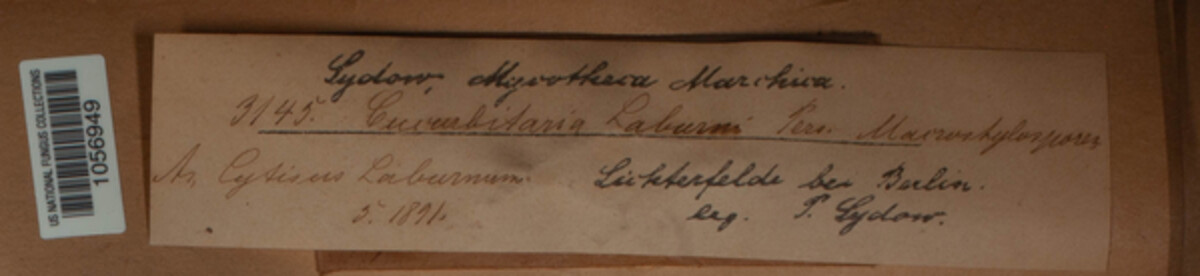 US NATIONAL FUNGUS COLLECTIONS
1056949
Sydow, Mycotheca Marchica.
3145. Cucurbitaria Laburni Pers. Macrostylosporen
An Cytisus Laburnum. Lichterfelde bei Berlin.
5. 1891. leg. P. Sydow.